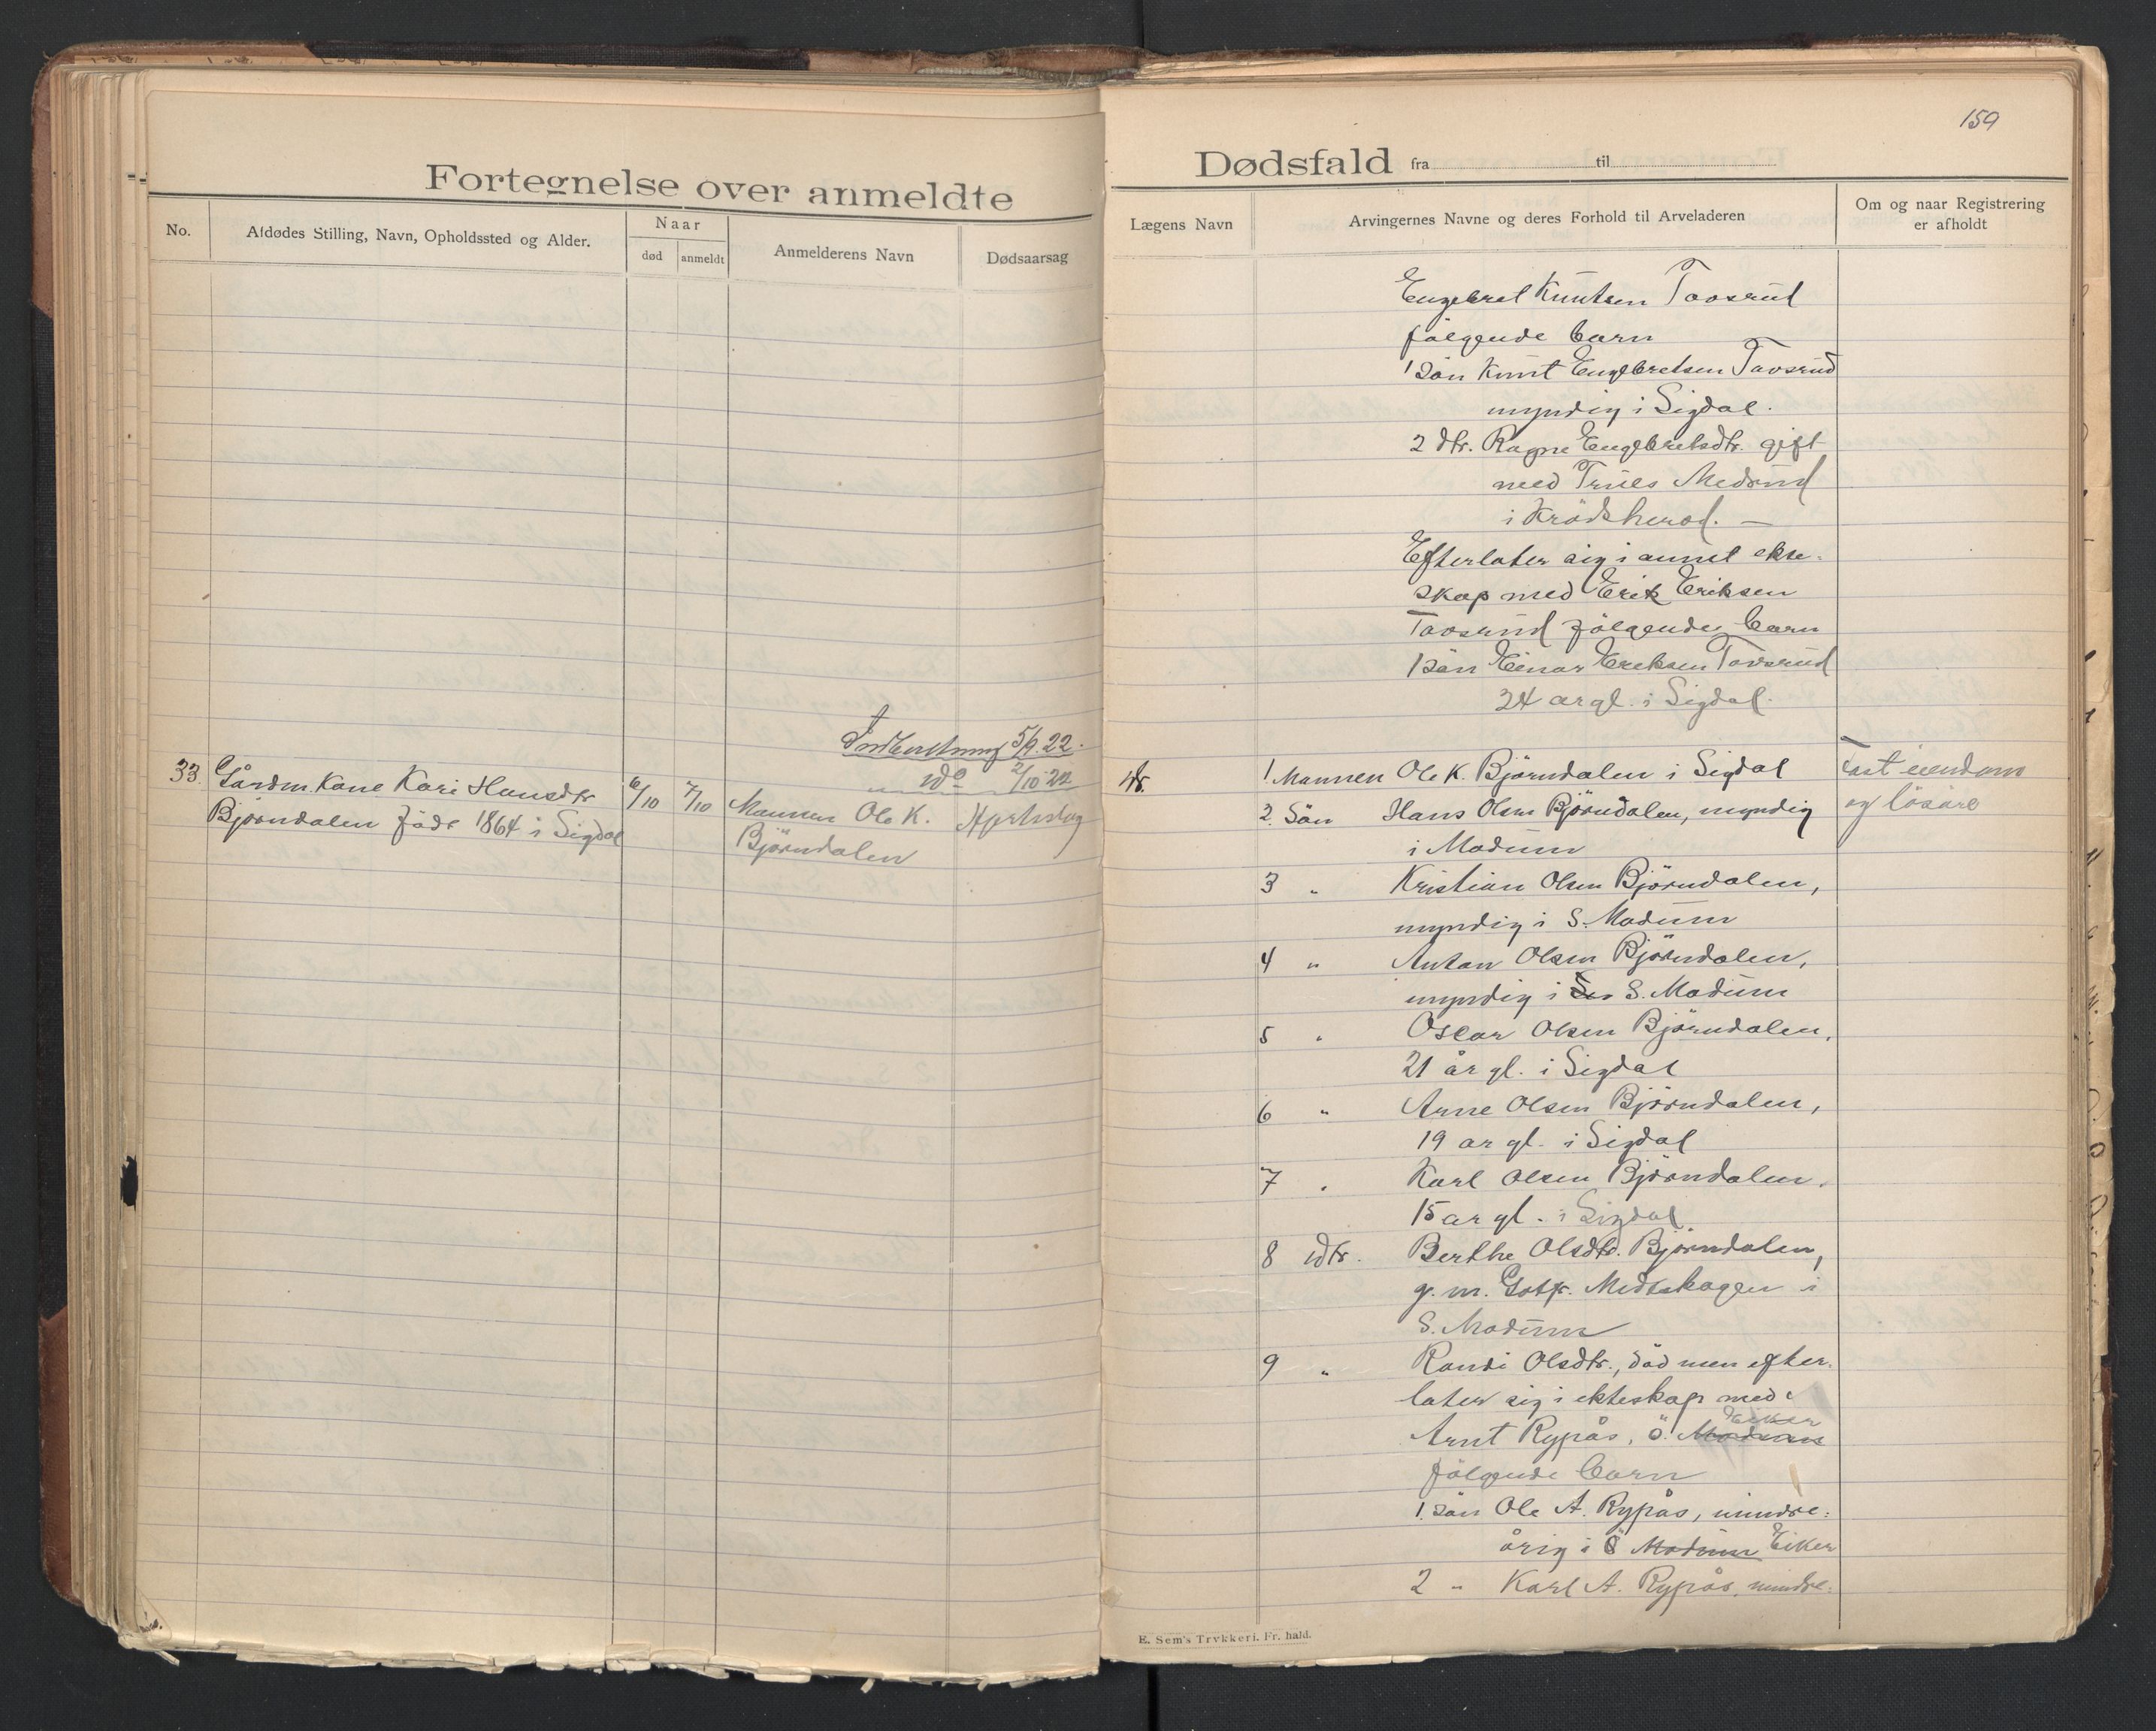 159
Fortegnelse over anmeldte
Dødsfald fra til
No.
Afdødes Stilling, Navn, Opholdssted og Alder.
Naar
død
anmeldt
Anmelderens Navn
Dødsaarsag
Lægens Navn
Arvingernes Navne og deres Forhold til Arveladeren
Om og naar Registrering
er afholdt
Engebret Knutsen Tovsrud
følgende barn
1 Sön Knut Engebretsen Tovsrud
myndig i Sigdal.
2 dtr. Ragne Engebretsdtr. gift
med Truls Medrud
i Krödsherod. —
Efterlater sig i annet ekte-
skap med Erik Eriksen
Tovsrud følgende barn
1 sön Einar Eriksen Tovsrud
24 ar gl. i Sigdal.
Indberetning 5/9.22.
do 2/10 22
33. Gårdm. Kone Kari Hansdtr
Björndalen födt 1864 i Sigdal
6/10 7/10
Mannen Ole K.
Björndalen
Hjerteslag
1. Mannen Ole K. Björndalen i Sigdal
2. Sön Hans Olsen Björndalen, myndig
i Modum
3 " Kristian Olsen Björndalen,
myndig i S. Modum
4 " Anton Olsen Björndalen,
myndig i S. Modum
5 " Oscar Olsen Björndalen,
21 år gl. i Sigdal
6 " Arne Olsen Björndalen,
19 ar gl. i Sigdal
7 " Karl Olsen Björndalen.
15 ar gl. i Sigdal
8 dtr. Berthe Olsdtr. Björndalen,
g. m. Gotfr. Midtskogen i
S. Modum
9 " Randi Olsdtr., död men efter-
later sig i ekteskap med
Arnt Rypås, Ö. Modum Eiker
følgende barn
1. sön Ole A. Rypås, mindre-
årig i Ö Modum Eiker
2 " Karl A. Rypås, mindre-
Fast eiendom
og lösöre
E. Sem's Trykkeri. Fr. hald.